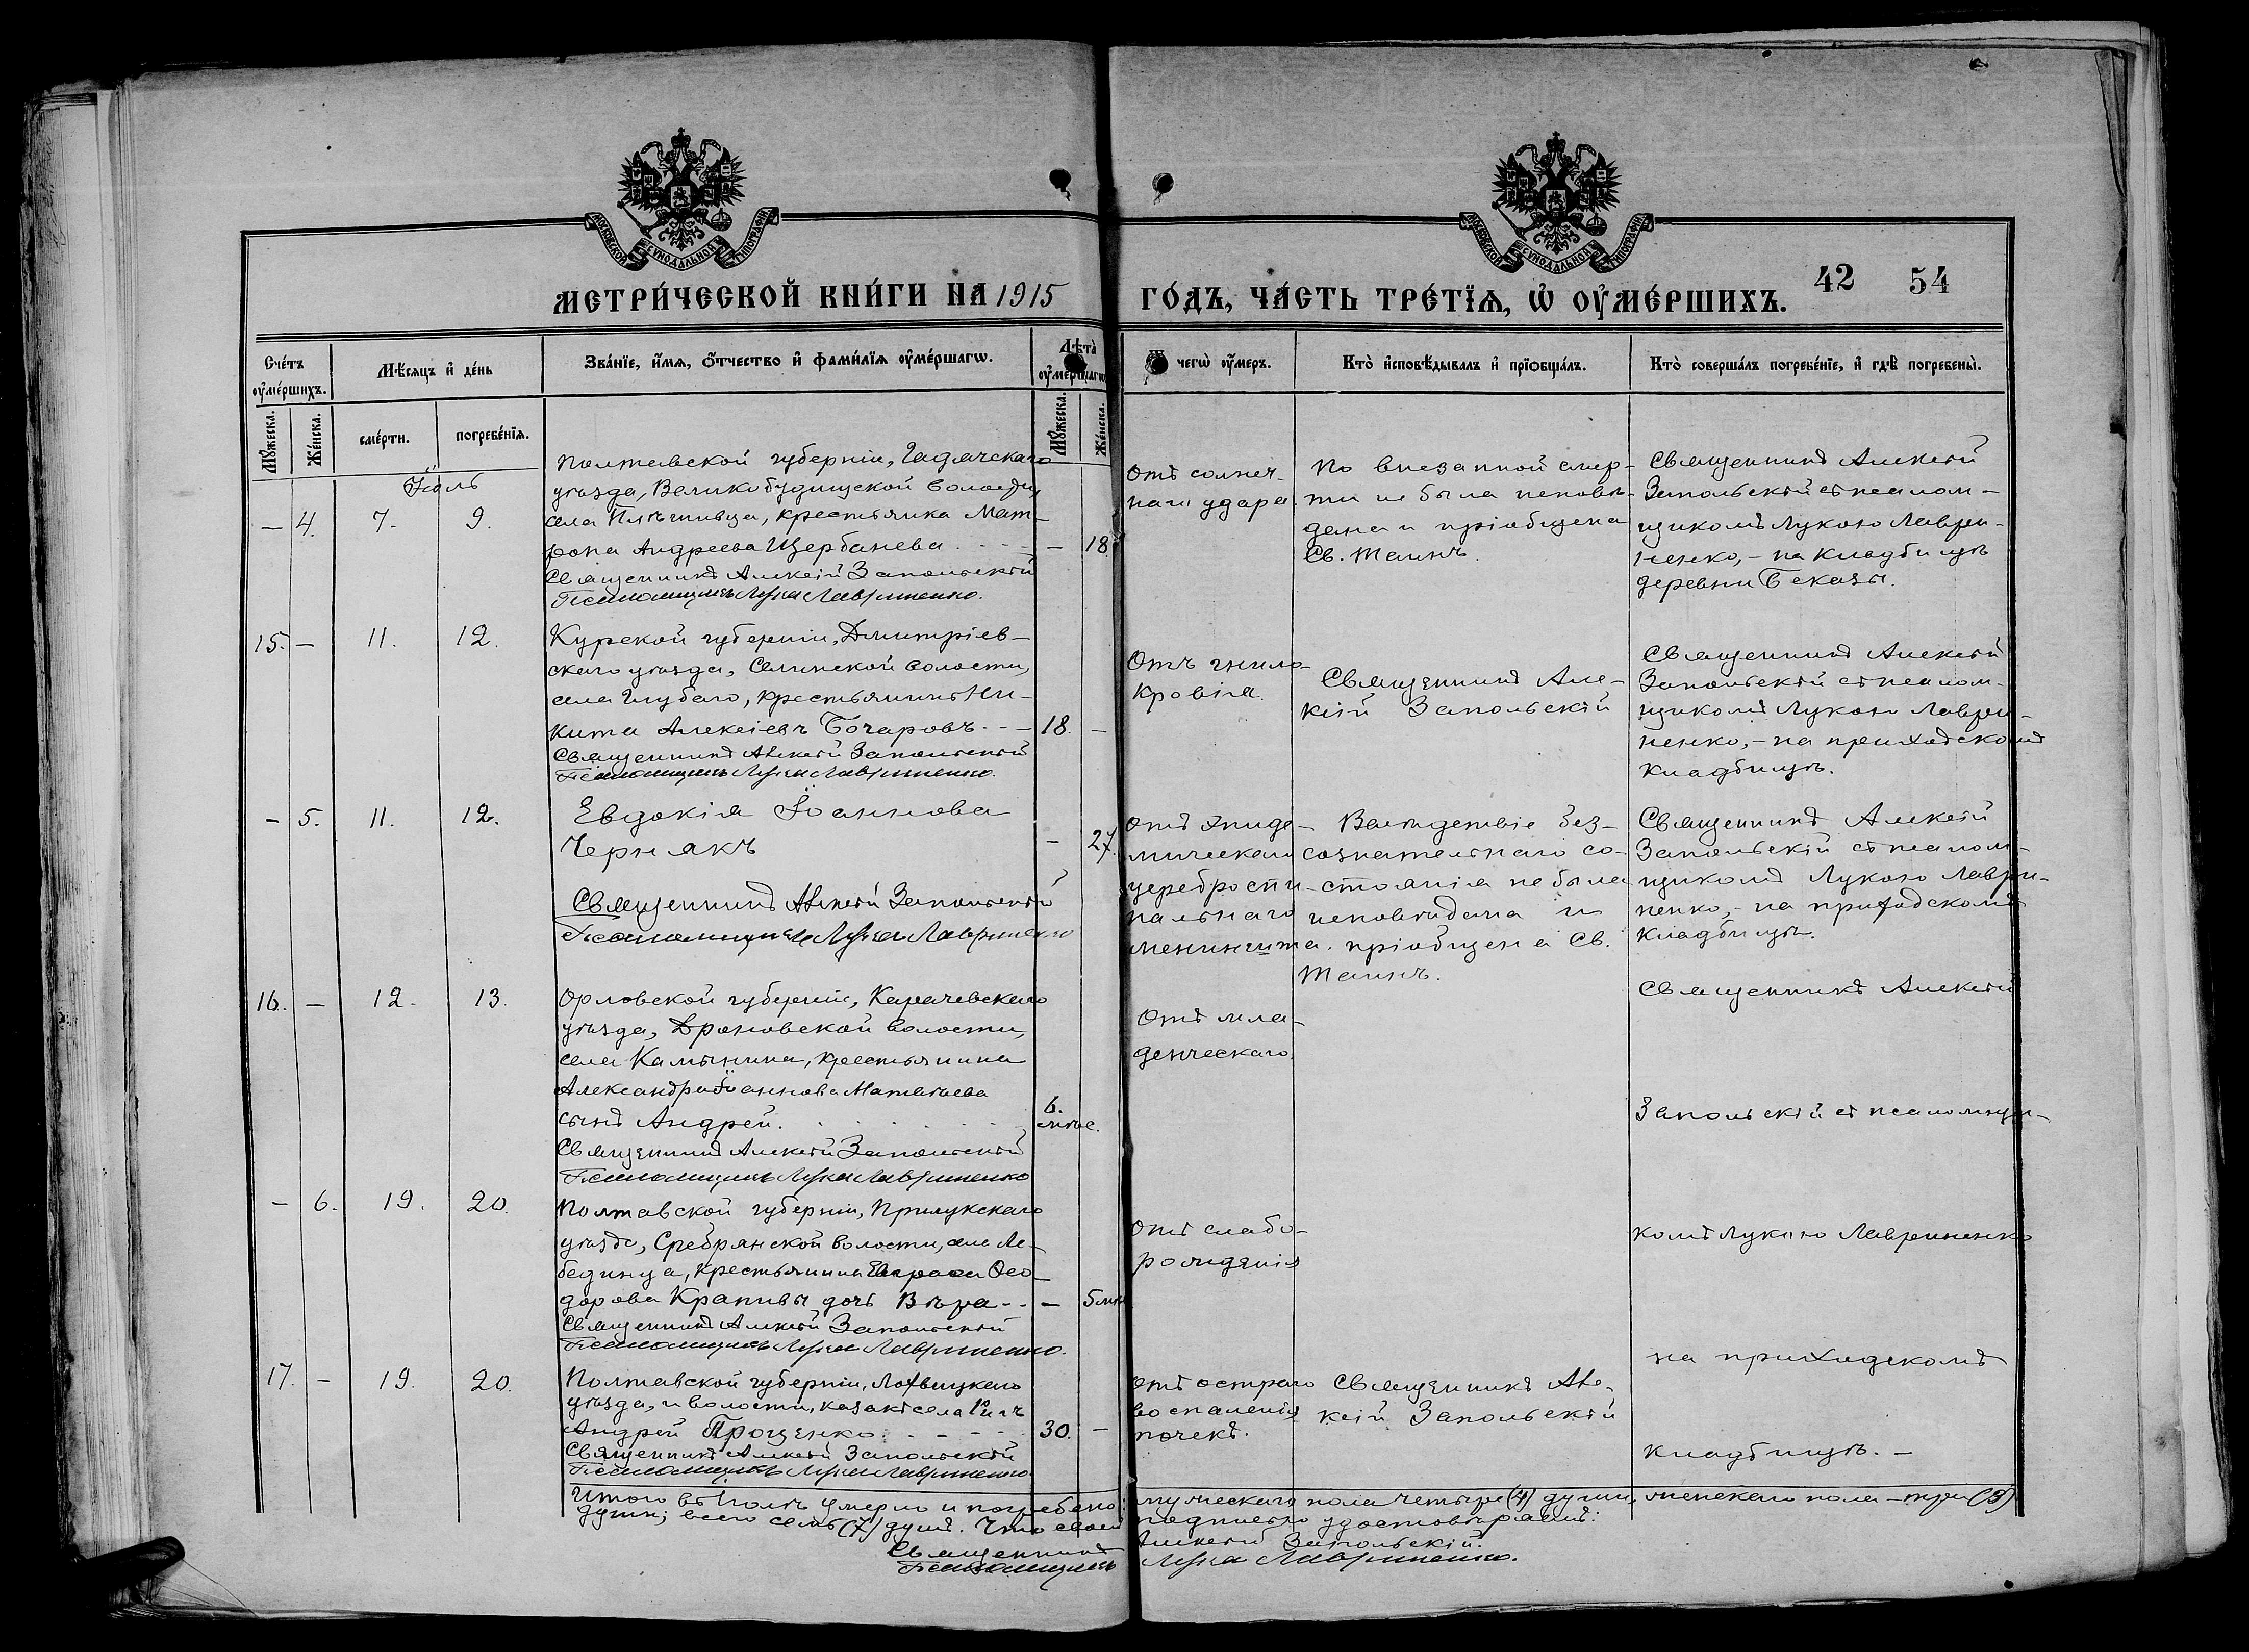 МОСКОВСКОЙ СѴНОДАЛЬНОЙ ТИПОГРАФІИ
МОСКОВСКОЙ СѴНОДАЛЬНОЙ ТИПОГРАФІИ
МЕТРИ́ЧЕСКОЙ КНИ́ГИ НА 1915 ГО́ДЪ, ЧА́СТЬ ТРЕ́ТЇѦ, Ѡ҆ ОУ҆МЕ́РШИХЪ.
42 54
Сче́тъ оу҆ме́ршихъ.
Мѣ́сяцъ и҆ де́нь
Зва́нїе, и҆́мѧ, ѻ҆́тчество и҆ фами́лїѧ оу҆ме́ршагѡ.
Лѣ́та оу҆ме́ршагѡ
чегѡ̀ оу҆́меръ.
Кто̀ и҆сповѣ́дывалъ и҆ прїѡбща́лъ.
Кто̀ соверша́лъ погребе́нїе, и҆ гдѣ̀ погребены̀.
Мꙋ́жеска.
Же́нска.
сме́рти.
погребе́нїѧ.
Мꙋ́жеска.
Же́нска.
Іюль
— 4. 7. 9.
Полтавской губерніи, Гадячскаго
уѣзда, Великобудищской волости,
села крестьянка Мат-
рона Андреева Щербанева — 18
Священникъ Алексій Запольскій
Псаломщикъ Лука Лавриненко.
Отъ солнеч-
наго удара.
По внезапной смер-
ти не была исповѣ-
дана и пріобщена
Св. Таинъ.
Священникъ Алексій
Запольскій съ псалом-
щикомъ Лукою Лаври-
ненко, - на кладбищѣ
деревни Беказы.
15. — 11. 12.
Курской губерніи, Дмитріев-
скаго уѣзда, Селинской волости,
села Глубаго, крестьянинъ Ни-
кита Алексіевъ Бочаровъ - - 18. —
Священникъ Алексій Запольскій
Псаломщикъ Лука Лавриненко.
Отъ гнило-
кровія.
Священникъ Але-
ксій Запольскій
Священникъ Алексій
Запольскій съ псалом-
щикомъ Лукою Лаври-
ненко, - на приходскомъ
кладбищѣ.
— 5. 11. 12.
Евдокія Іоаннова
Чернякъ — 27.
Священникъ Алексій Запольскій
Псаломщикъ Лука Лавриненко
Отъ эпиде-
мическаго
цереброспи-
нальнаго
менингита.
Вслѣдствіе без-
сознательнаго со-
стоянія не была
исповѣдана и
пріобщена Св.
Таинъ.
Священникъ Алексій
Запольскій съ псалом-
щикомъ Лукою Лаври-
ненко, - на приходскомъ
кладбищѣ.
16. — 12. 13.
Орловской губерніи, Карачевскаго
уѣзда, Дроновской волости,
села Камынина, крестьянина
Александра Іоаннова Матвѣева
сынъ Андрей. 6. мѣс.
Священникъ Алексій Запольскій
Псаломщикъ Лука Лавриненко
Отъ мла-
денческаго.
Священникъ Алексій
Запольскій съ псаломщи-
— 6. 19. 20.
Полтавской губерніи, Прилукскаго
уѣзда, Сребрянской волости, села Ле-
бединца, крестьянина Ѳео-
дорова Крапивы дочь Вѣра - - — 5 мѣс
Священникъ Алексій Запольскій
Псаломщикъ Лука Лавриненко.
Отъ слабо-
рожденія
комъ Лукою Лавриненко
на приходскомъ
17. — 19. 20.
Полтавской губерніи, Лохвицкаго
уѣзда, и волости, казакъ села
Андрей Проценко. 30. —
Священникъ Алексій Запольскій
Псаломщикъ Лука Лавриненко
Отъ остраго
воспаленія
почекъ.
Священникъ Але-
ксій Запольскій
кладбищѣ. —
Итого въ Іюлѣ умерло и погребено: мужескаго пола четыре (4) души, женскаго пола - три (3)
души; всего семь (7) душъ. Что своею подписью удостовѣряемъ:
Священникъ Алексій Запольскій.
Псаломщикъ Лука Лавриненко.